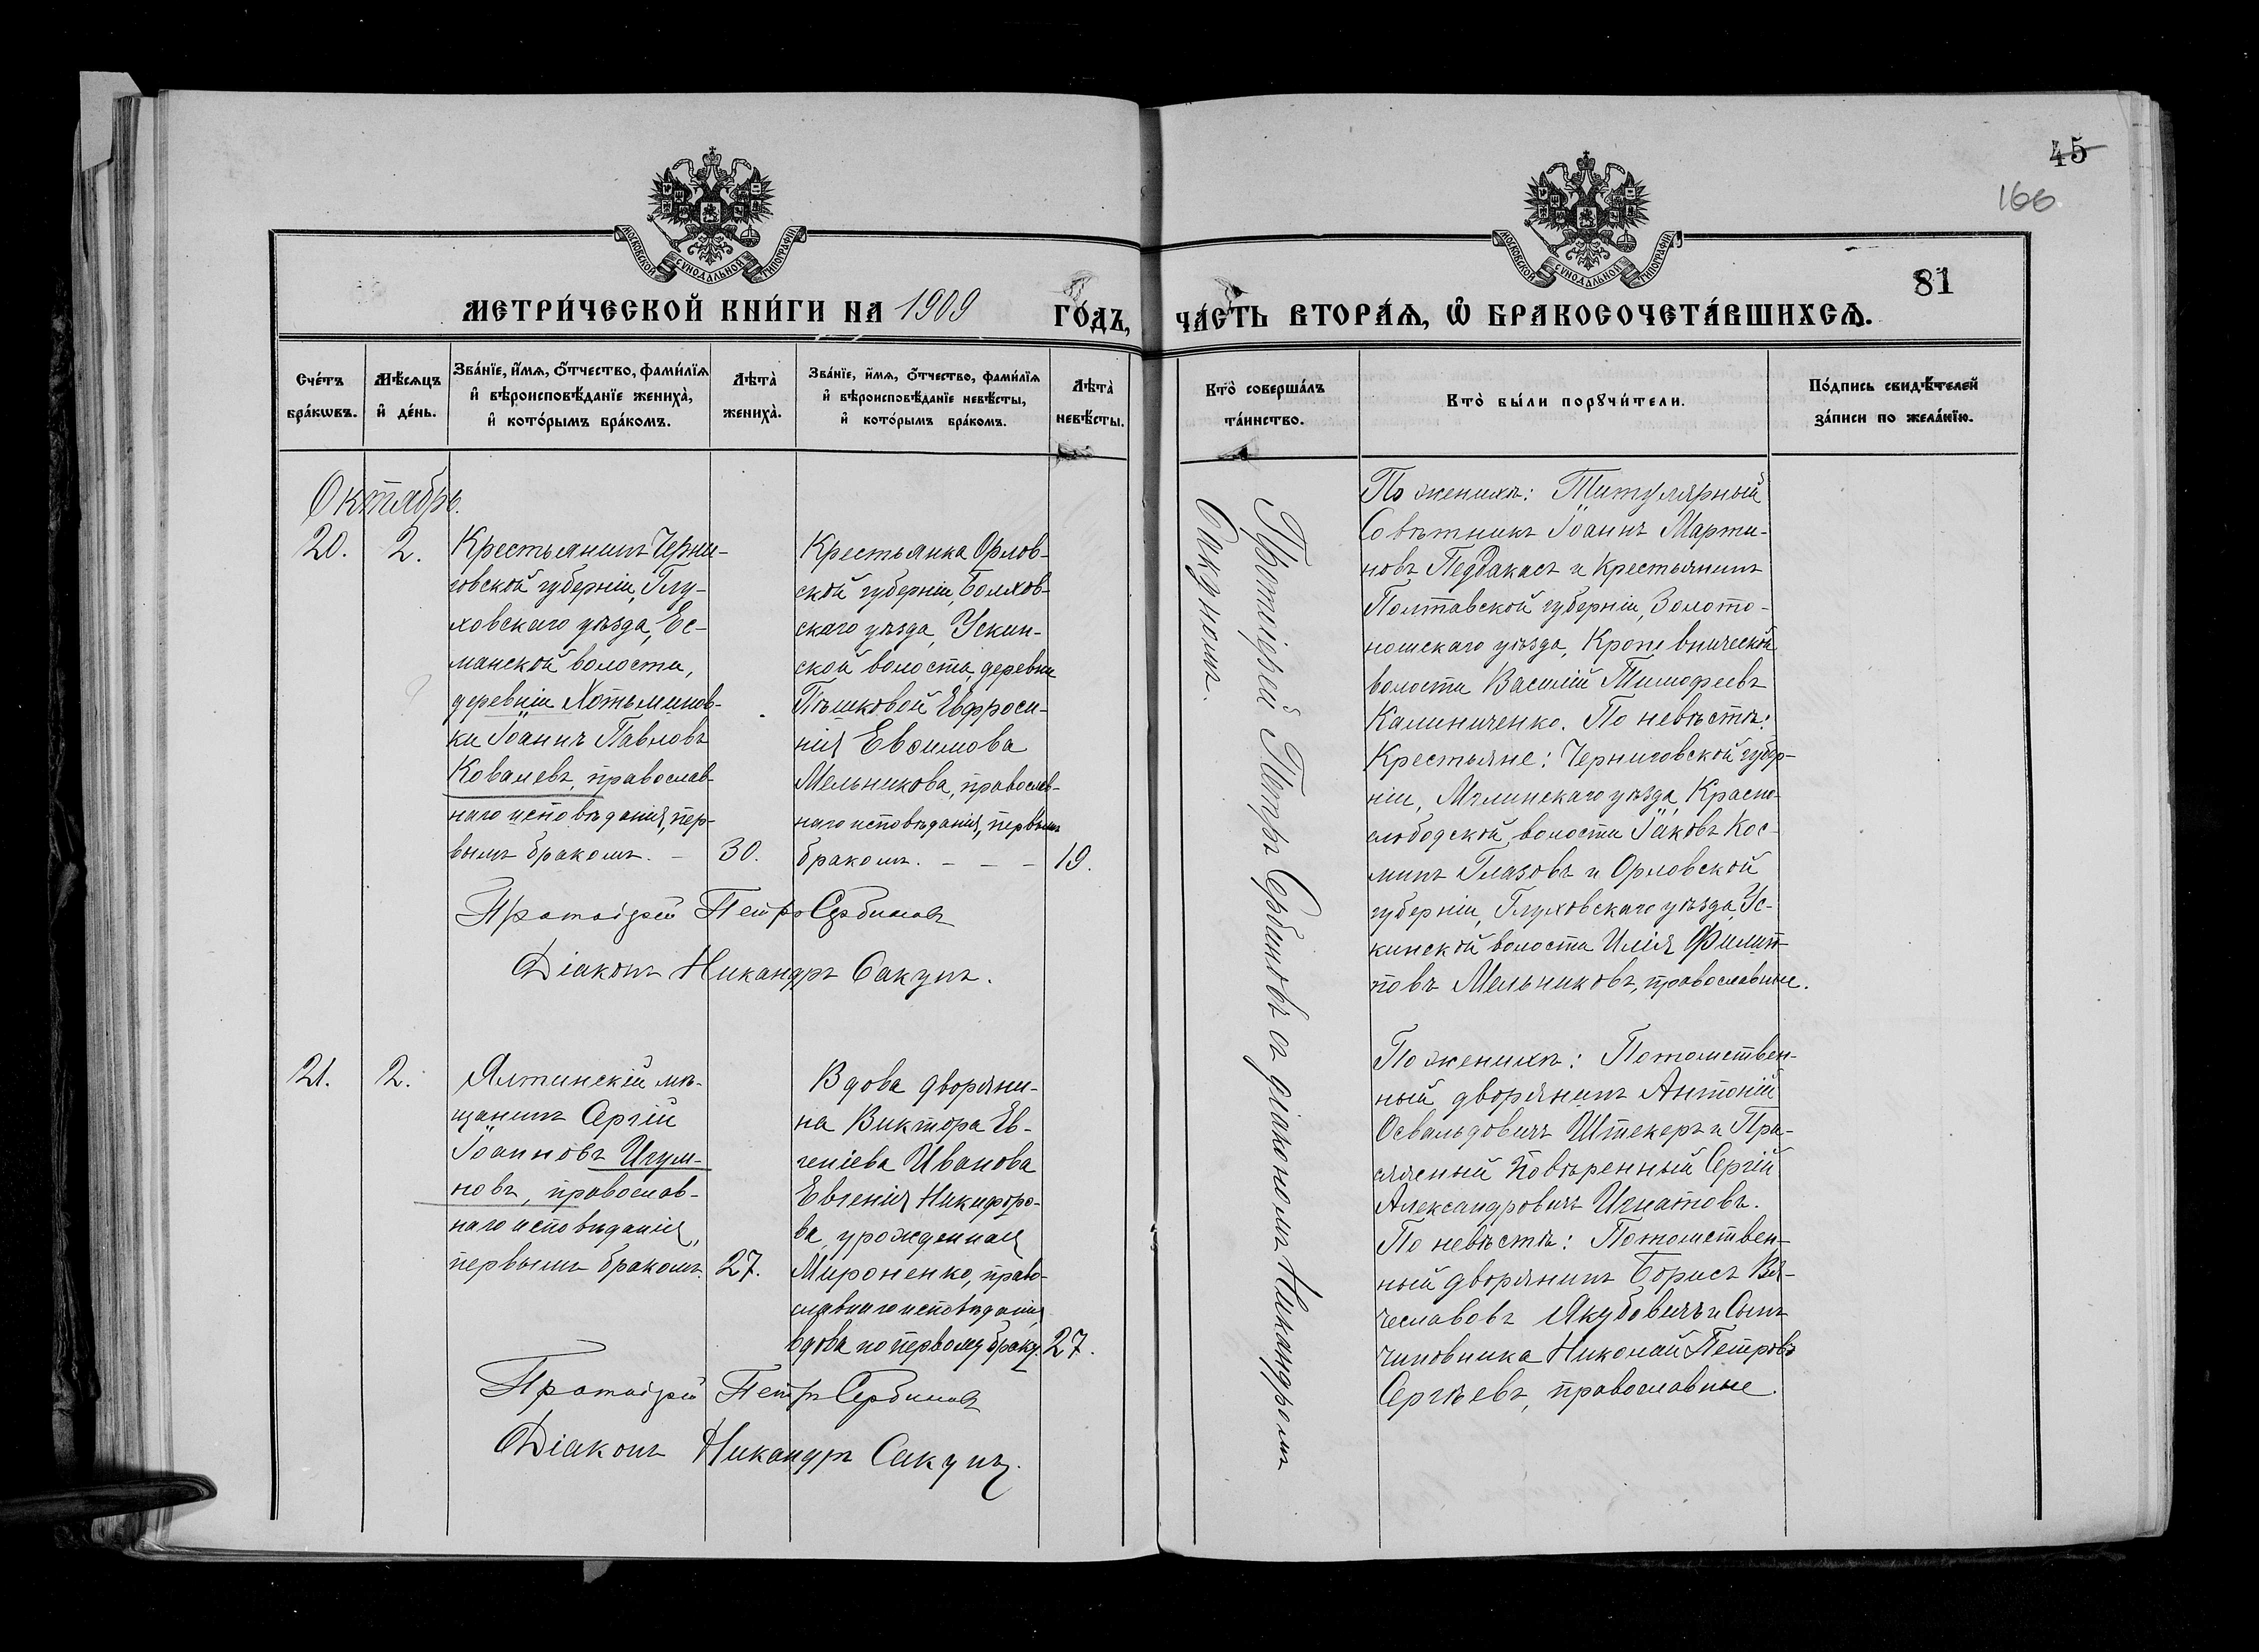 45
166
81
МОСКОВСКОЙ СѴНОДАЛЬНОЙ ТИПОГРАФІИ
МОСКОВСКОЙ СѴНОДАЛЬНОЙ ТИПОГРАФІИ
МЕТРИ́ЧЕСКОЙ КНИ́ГИ НА 1909 ГО́ДЪ, ЧА́СТЬ ВТОРА́Ѧ, Ѿ БРАКОСОЧЕТА́ВШИХСѦ.
Сче́тъ бра́кѡвъ.
Мѣ́сѧцъ и҆ де́нь.
Зва́нїе, и҆́мѧ, ѻ҆́тчество, фами́лїѧ и҆ вѣроисповѣ́данїе жениха̀, и҆ кото́рымъ бра́комъ.
Лѣта̀ жениха̀.
Зва́нїе, и҆́мѧ, ѻ҆́тчество, фами́лїѧ и҆ вѣроисповѣ́данїе невѣ́сты, и҆ кото́рымъ бра́комъ.
Лѣта̀ невѣ́сты.
Кто̀ соверша́лъ та́инство.
Кто̀ бы́ли порꙋчи́тели.
По́дпись свидѣ́телей за́писи по жела́нїю.
Октябрь.
20.
2.
Крестьянинъ Черни-
говской губерніи, Глу-
ховскаго уѣзда, Ес-
манской волости,
деревніи Хотьминов-
ки Іоаннъ Павловъ
Ковалевъ, православ-
наго исповѣданія, пер-
вымъ бракомъ. –
30.
Крестьянка Орлов-
ской губерніи, Болхов-
скаго уѣзда, Ускин-
ской волости, деревни
Пѣшковой Евфроси-
нія Евѳимова
Мельникова, православ-
наго исповѣданія, первымъ
бракомъ. – – –
19.
Протоіерей Петръ Сербиновъ
Діаконъ Никандръ Сакунъ.
Протоіерей Петръ Сербиновъ съ діакономъ Никандромъ
Сакуномъ.
По женихѣ: Титулярный
Совѣтникъ Іоаннъ Марти-
новъ Педдакасъ и Крестьянинъ
Полтавской губерніи, Золото-
ношскаго уѣзда, Кропивнической
волости Василій Тимофеевъ
Калиниченко. По невѣстѣ:
Крестьяне: Черниговской губер-
ніи, Мглинскаго уѣзда, Красно-
слободской, волости Іаковъ Кос-
минъ Глазовъ и Орловской
губерніи, Глуховскаго уѣзда, Ус-
кинской волости Илія Филип-
повъ Мельниковъ, православные.
21.
2.
Ялтинскій мѣ-
щанинъ Сергій
Іоанновъ Игум-
новъ, православ-
наго исповѣданія,
первымъ бракомъ.
27.
Вдова дворяни-
на Виктора Ев-
геніева Иванова
Евгенія Никифоро-
ва, урожденная
Мироненко, право-
славнаго исповѣданія
вдова по первому браку.
27.
Протоіерей Петръ Сербиновъ
Діаконъ Никандръ Сакунъ.
По женихѣ: Потомствен-
ный дворянинъ Антоній
Освальдовичъ Штекеръ и При-
сяжный Повѣренный Сергій
Александровичъ Игнатовъ.
По невѣстѣ: Потомствен-
ный дворянинъ Борисъ Вя-
чеславовъ Якубовичъ и Сынъ
чиновника Николай Петровъ
Сергѣевъ, православные.